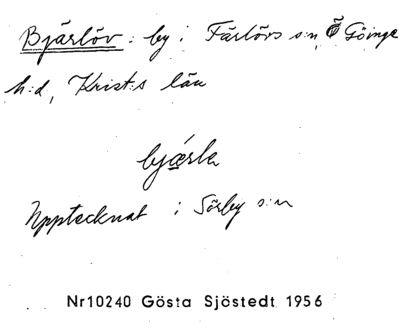 Bjärlöv: by i Färlövs s:n, Ö Göinge
h:d, Krist:s län
bjǽrla
Upptecknat i Sörby s:n
Nr10240 Gösta Sjöstedt 1956